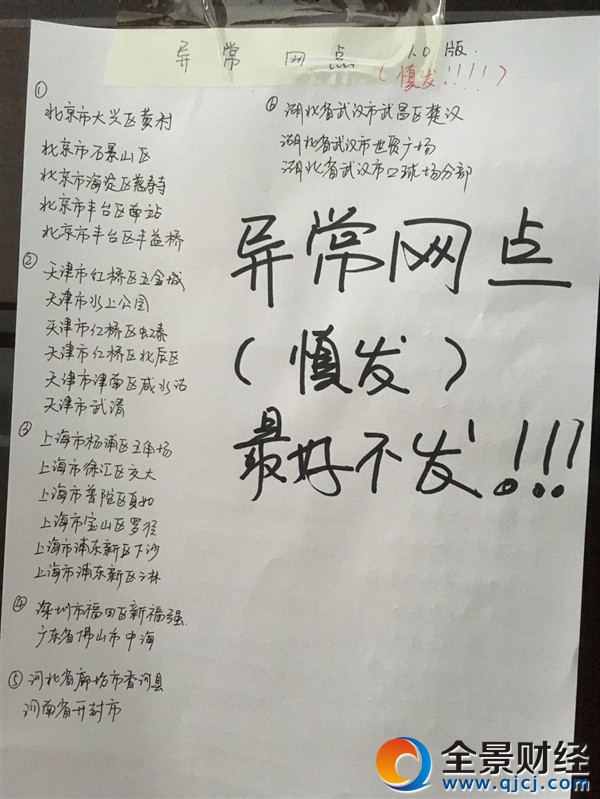 异常网点 1.0版.
(慎发!!!!)
①
北京市大兴区黄村
北京市石景山区
北京市海淀区慈寿寺
北京市丰台区南站
北京市丰台区丰益桥
②
天津市红桥区五金城
天津市水上公园
天津市红桥区虹泰
天津市红桥区北辰区
天津市津南区咸水沽
天津市武清
③
上海市杨浦区五角场
上海市徐汇区交大
上海市普陀区真如
上海市宝山区罗泾
上海市浦东新区下沙
上海市浦东新区三林
④
深圳市福田区新福强
广东省佛山市中海
⑤
河北省廊坊市香河县
河南省开封市
⑥
湖北省武汉市武昌区楚汉
湖北省武汉市世贸广场
湖北省武汉市口球场分部
异常网点
(慎发)
最好不发!!!
全景财经
www.qjcj.com